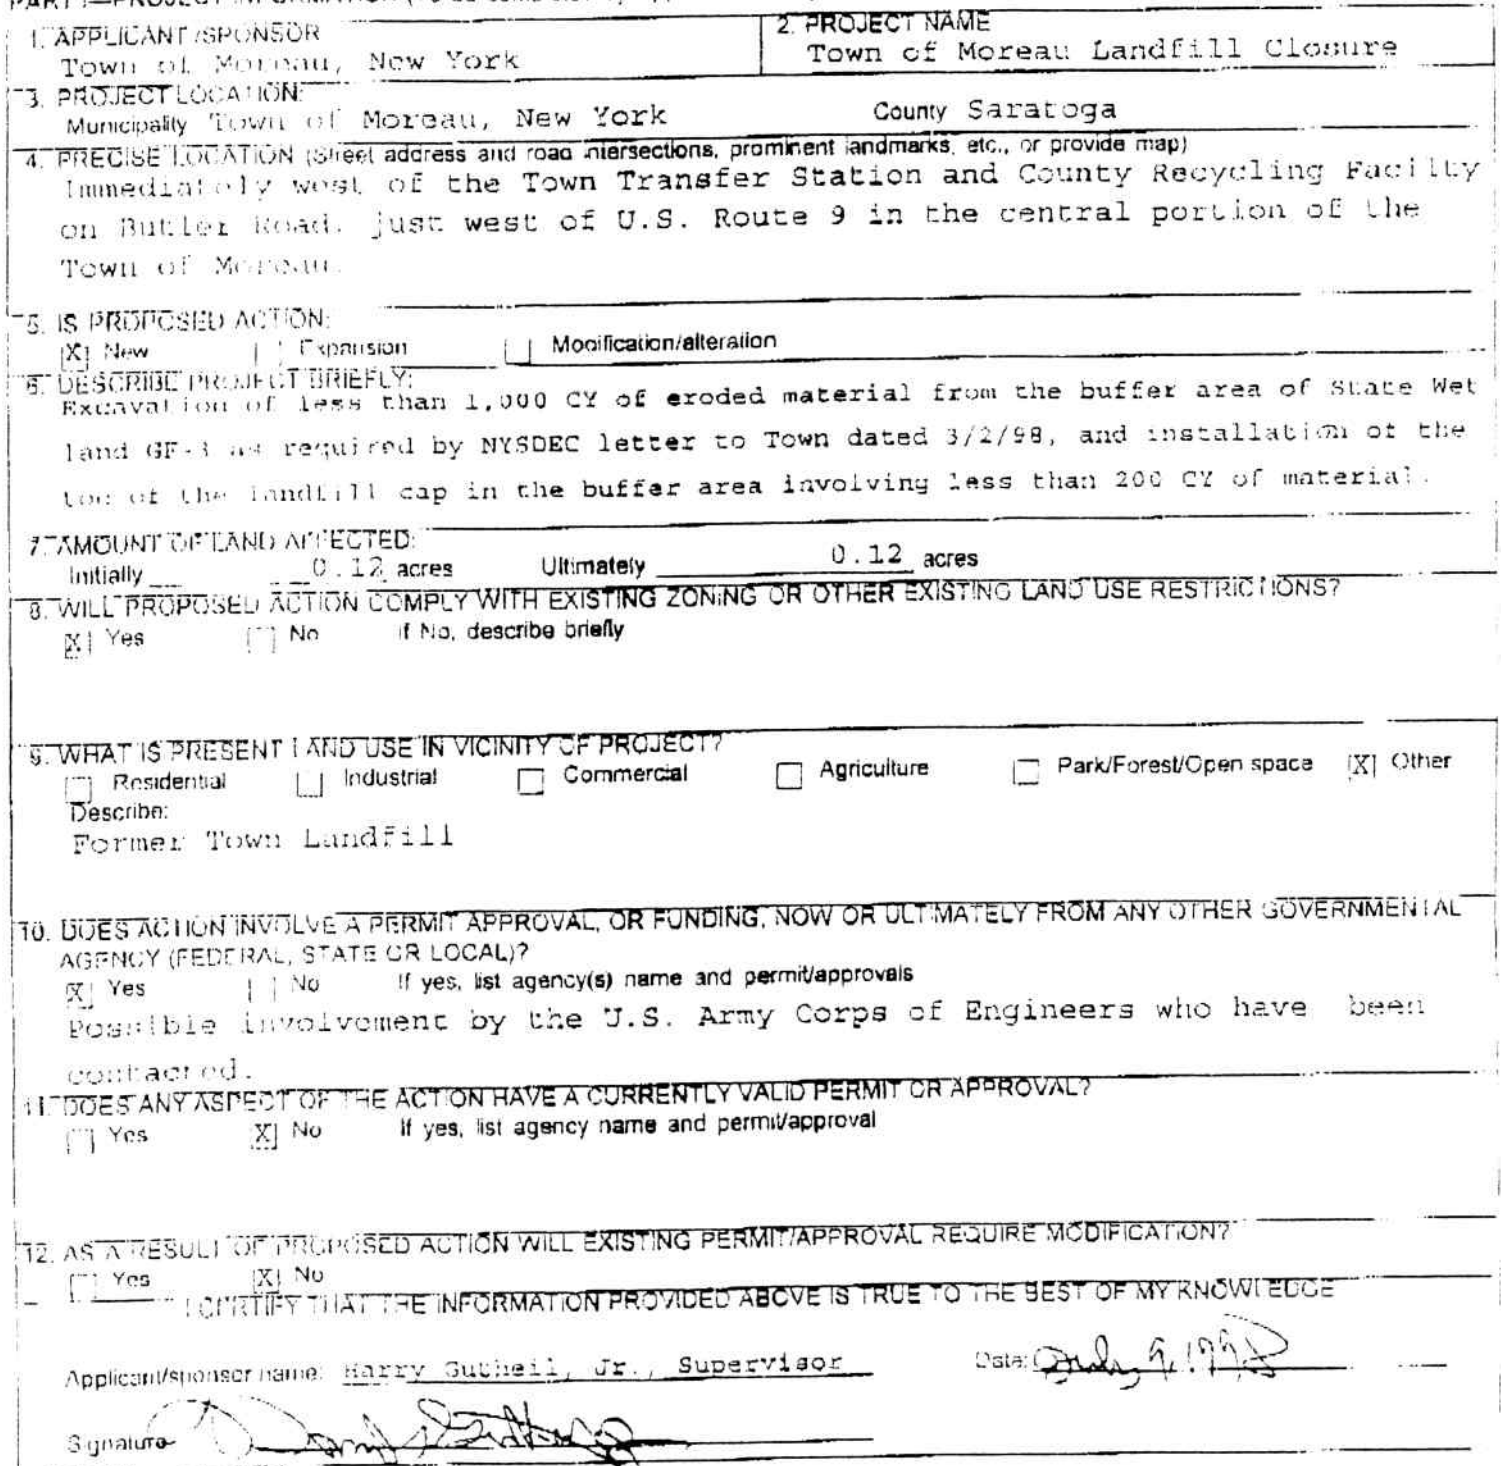 PART 1—PROJECT INFORMATION
1. APPLICANT/SPONSOR
Town of Moreau, New York
2. PROJECT NAME
Town of Moreau Landfill Closure
3. PROJECT LOCATION:
Municipality Town of Moreau, New York County Saratoga
4. PRECISE LOCATION (Street address and road intersections, prominent landmarks, etc., or provide map)
Immediately west of the Town Transfer Station and County Recycling Facilty
on Butler Road, just west of U.S. Route 9 in the central portion of the
Town of Moreau.
5. IS PROPOSED ACTION:
[X] New [ ] Expansion [ ] Modification/alteration
6. DESCRIBE PROJECT BRIEFLY:
Excavation of less than 1,000 CY of eroded material from the buffer area of State Wet
land GF-3 as required by NYSDEC letter to Town dated 3/2/98, and installation of the
toe of the landfill cap in the buffer area involving less than 200 CY of material.
7. AMOUNT OF LAND AFFECTED:
Initially 0.12 acres Ultimately 0.12 acres
8. WILL PROPOSED ACTION COMPLY WITH EXISTING ZONING OR OTHER EXISTING LAND USE RESTRICTIONS?
[X] Yes [ ] No If No, describe briefly
9. WHAT IS PRESENT LAND USE IN VICINITY OF PROJECT?
[ ] Residential [ ] Industrial [ ] Commercial [ ] Agriculture [ ] Park/Forest/Open space [X] Other
Describe:
Former Town Landfill
10. DOES ACTION INVOLVE A PERMIT APPROVAL, OR FUNDING, NOW OR ULTIMATELY FROM ANY OTHER GOVERNMENTAL
AGENCY (FEDERAL, STATE OR LOCAL)?
[X] Yes [ ] No If yes, list agency(s) name and permit/approvals
Possible involvement by the U.S. Army Corps of Engineers who have been
contacted.
11. DOES ANY ASPECT OF THE ACTION HAVE A CURRENTLY VALID PERMIT OR APPROVAL?
[ ] Yes [X] No If yes, list agency name and permit/approval
12. AS A RESULT OF PROPOSED ACTION WILL EXISTING PERMIT/APPROVAL REQUIRE MODIFICATION?
[ ] Yes [X] No
I CERTIFY THAT THE INFORMATION PROVIDED ABOVE IS TRUE TO THE BEST OF MY KNOWLEDGE
Applicant/sponsor name: Harry Gutheil, Jr., Supervisor Date: July 9, 1998
Signature